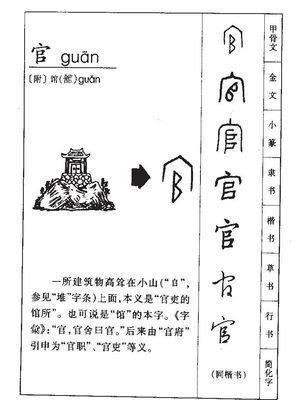 官 guān
〔附〕馆(館)guǎn
一所建筑物高耸在小山(“𠂤”,
参见“堆”字条)上面,本义是“官吏的
馆所”。也可说是“馆”的本字。《字
彙》:“官,官舍曰官。”后来由“官府”
引申为“官职”、“官吏”等义。
官
官
官
官
官
官
官
(同楷书)
甲骨文
金文
小篆
隶书
楷书
草书
行书
简化字